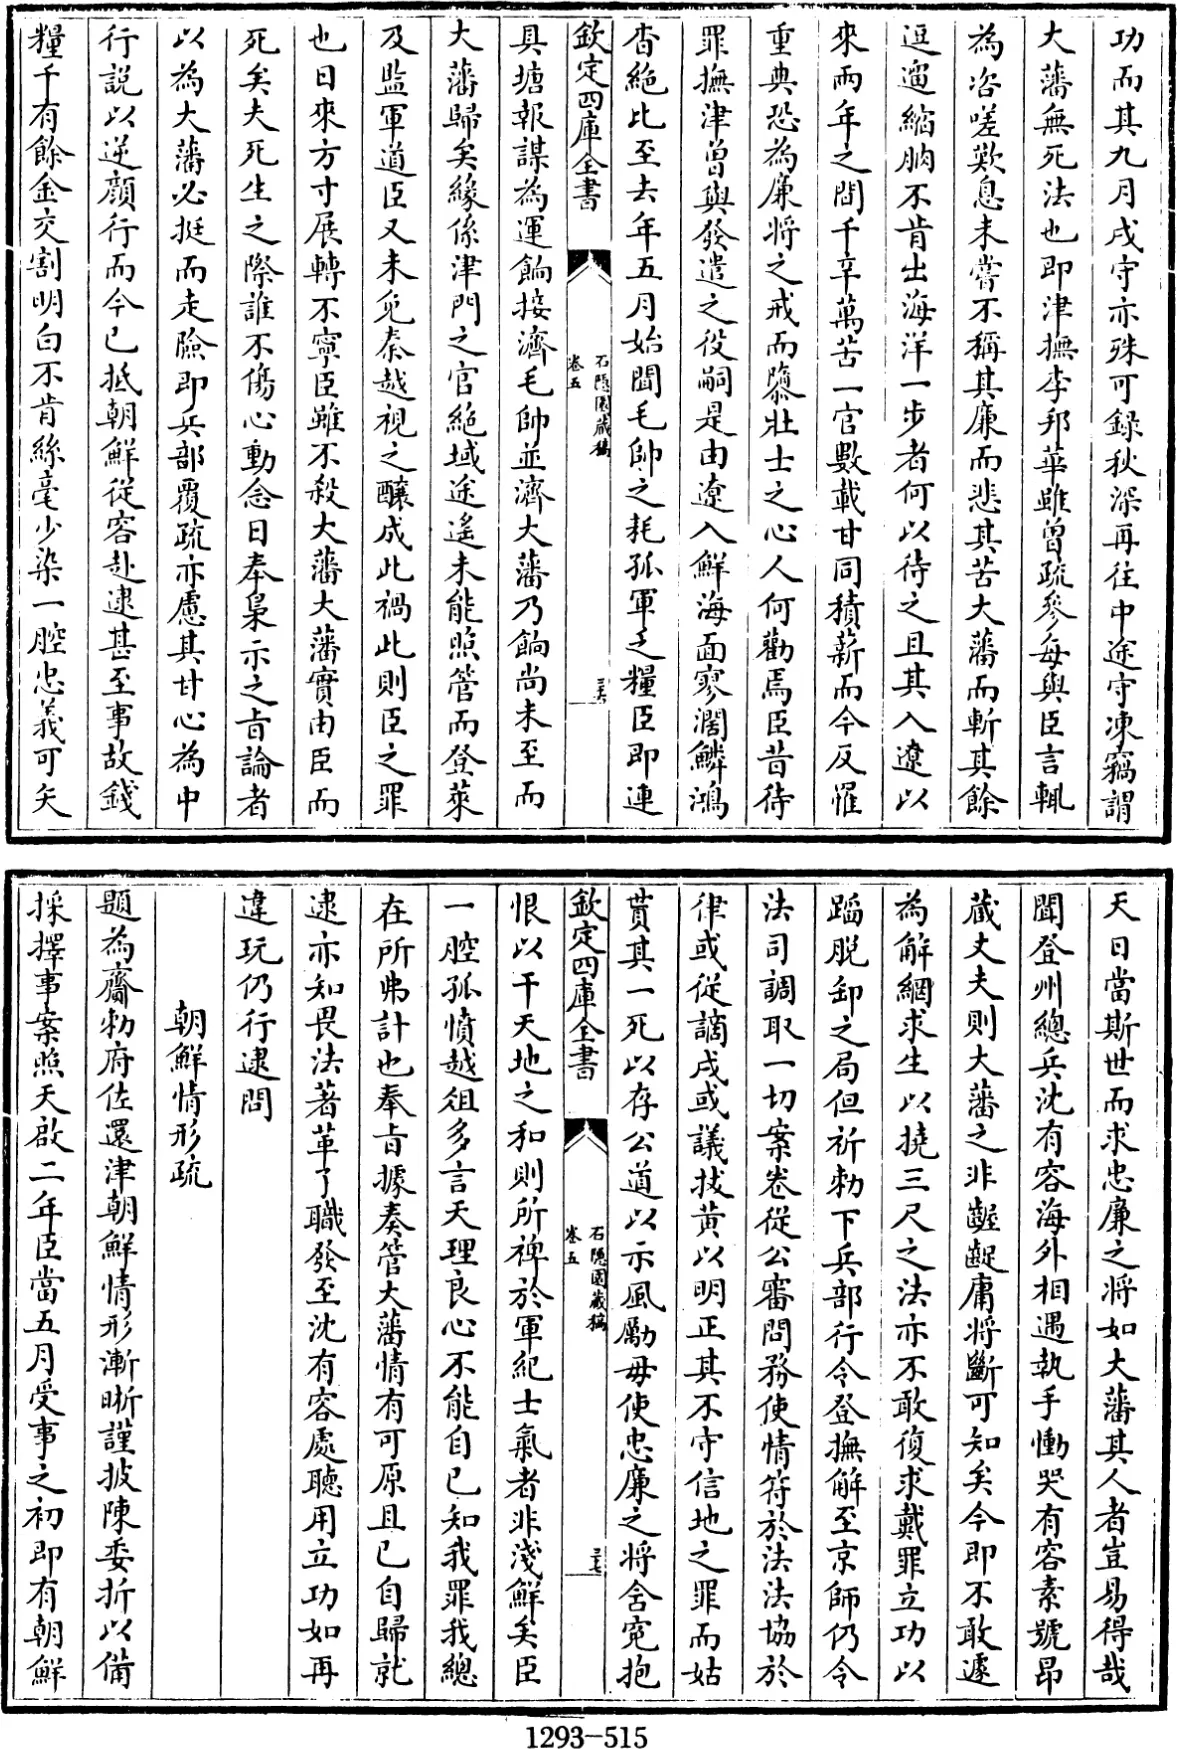 功而其九月戍守亦殊可録秋深再往中途守凍竊謂
大藩無死法也即津撫李邦華雖曾疏參每與臣言輒
為咨嗟歎息未嘗不稱其廉而悲其苦大藩而斬其餘
逗遛縮朒不肯出海洋一步者何以待之且其入遼以
來兩年之間千辛萬苦一官數載甘同積薪而今反罹
重典恐為廉將之戒而隳壯士之心人何勸焉臣昔待
罪撫津曾與發遣之役嗣是由遼入鮮海面寥濶鱗鴻
杳絶比至去年五月始聞毛帥之耗孤軍乏糧臣即連
欽定四庫全書
石隱園藏稿
卷五
三六
具塘報謀為運餉接濟毛帥並濟大藩乃餉尚未至而
大藩歸矣緣係津門之官絶域途遙未能照管而登萊
及監軍道臣又未免秦越視之釀成此禍此則臣之罪
也日來方寸展轉不寧臣雖不殺大藩大藩實由臣而
死矣夫死生之際誰不傷心動念日奉梟示之㫖論者
以為大藩必挺而走險即兵部覆疏亦慮其甘心為中
行説以逆顔行而今已抵朝鮮從容赴逮甚至事故錢
糧千有餘金交割明白不肯絲毫少染一腔忠義可矢
天日當斯世而求忠廉之將如大藩其人者豈易得哉
聞登州總兵沈有容海外相遇執手慟哭有容素號昂
藏丈夫則大藩之非齷齪庸將斷可知矣今即不敢遽
為解網求生以撓三尺之法亦不敢復求戴罪立功以
蹈脱卸之局但祈勅下兵部行令登撫解至京師仍令
法司調取一切案卷從公審問務使情符於法法協於
律或從謫戍或議拔黄以明正其不守信地之罪而姑
貰其一死以存公道以示風勵毋使忠廉之將含寃抱
欽定四庫全書
石隱園藏稿
卷五
三七
恨以干天地之和則所裨於軍紀士氣者非淺鮮矣臣
一腔孤憤越俎多言天理良心不能自已知我罪我總
在所弗計也奉㫖據奏管大藩情有可原且已自歸就
逮亦知畏法著革了職發至沈有容處聽用立功如再
違玩仍行逮問
朝鮮情形疏
題為齎勅府佐還津朝鮮情形漸晰謹披陳委折以備
採擇事案照天啟二年臣當五月受事之初即有朝鮮
1293-515